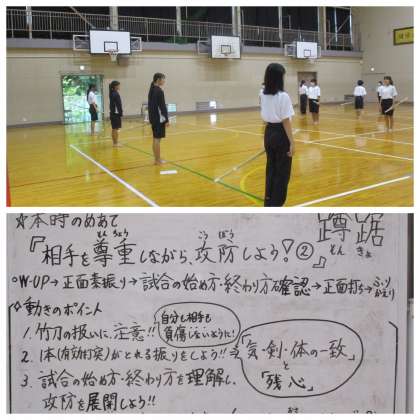 ☆本時のめあて
『相手を尊重しながら、攻防しよう！②』
そんちょう
こうぼう
蹲踞
そんきょ
○W-UP→正面素振り→試合の始め方・終わり方確認→正面打ち→ふりかえり
◇動きのポイント
1. 竹刀の扱いに、注意!!
自分も相手も負傷しないように！
2. 1本(有効打突)がとれる振りをしよう!!→
3. 試合の始め方・終わり方を理解し、
攻防を展開しよう!!
「気・剣・体の一致」
と
「残心」